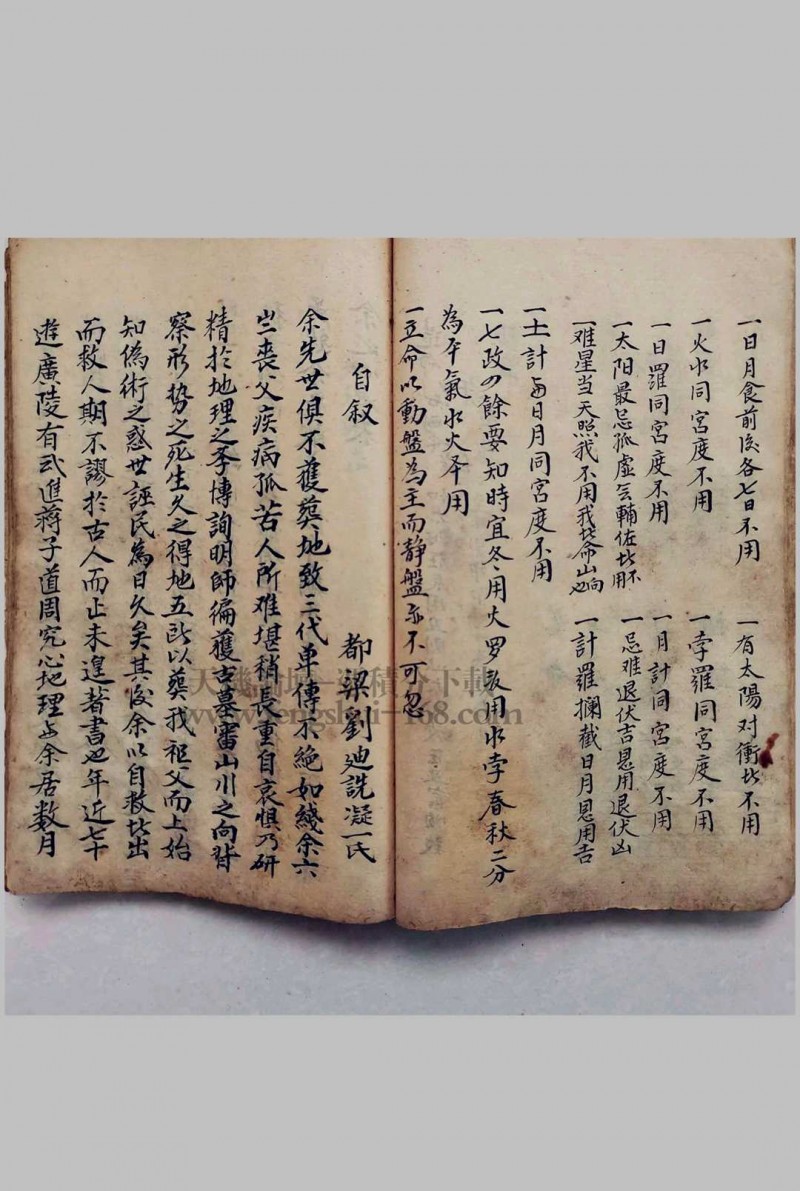 一日月食前後各七日不用　一有太陽对衝者不用
一火水同宮度不用　一孛羅同宮度不用
一日羅同宮度不用　一月計同宮度不用
一太阳最忌孤虚会輔佐者不用　一忌难退伏吉恩用退伏凶
一难星当天照我不用我者命山向也　一計羅攔截日月恩用吉
一土計与日月同宮度不用
一七政四餘要知時宜冬用火罗夏用水孛春秋二分
為平氣水火平用
一立命以動盤為主而静盤亦不可忽
自叙
都梁劉廸詵凝一氏
余先世俱不獲葬地致三代单傳不絶如綫余六
岁丧父疾病孤苦人所难堪稍長重自哀惧乃研
精於地理之季博詢明師徧獲古墓審山川之向背
察形势之死生久之得地五所以葬我祖父而上始
知偽術之惑世誣民為日久矣其後余以自救者出
而救人期不謬於古人而止未遑著書也年近七十
遊廣陵有武進蔣子道周究心地理与余居数月
天機商城-
www.fengshui-168.com